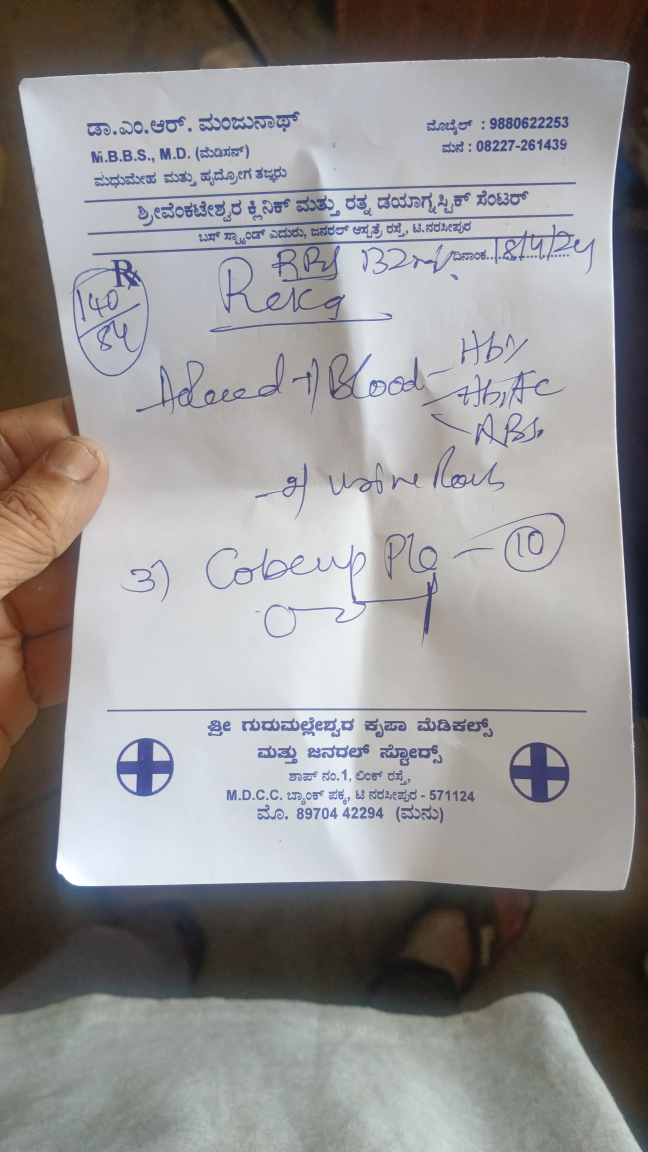 ಡಾ.ಎಂ.ಆರ್. ಮಂಜುನಾಥ್
M.B.B.S., M.D. (ಮೆಡಿಸನ್)
ಮಧುಮೇಹ ಮತ್ತು ಹೃದ್ರೋಗ ತಜ್ಞರು
ಮೊಬೈಲ್ : 9880622253
ಮನೆ : 08227-261439
ಶ್ರೀವೆಂಕಟೇಶ್ವರ ಕ್ಲಿನಿಕ್ ಮತ್ತು ರತ್ನ ಡಯಾಗ್ನಸ್ಟಿಕ್ ಸೆಂಟರ್
ಬಸ್ ಸ್ಟ್ಯಾಂಡ್ ಎದುರು, ಜನರಲ್ ಆಸ್ಪತ್ರೆ ರಸ್ತೆ, ಟಿ.ನರಸೀಪುರ
Rx
RBS 132 ದಿನಾಂಕ 18/4/24
140/84
Reka
1) Blood - Hb%
HbA1c
2) Urine Rou
3) 10
ಶ್ರೀ ಗುರುಮಲ್ಲೇಶ್ವರ ಕೃಪಾ ಮೆಡಿಕಲ್ಸ್
ಮತ್ತು ಜನರಲ್ ಸ್ಟೋರ್ಸ್
ಶಾಪ್ ನಂ.1, ಲಿಂಕ್ ರಸ್ತೆ,
M.D.C.C. ಬ್ಯಾಂಕ್ ಪಕ್ಕ, ಟಿ ನರಸೀಪುರ - 571124
ಮೊ. 89704 42294 (ಮನು)